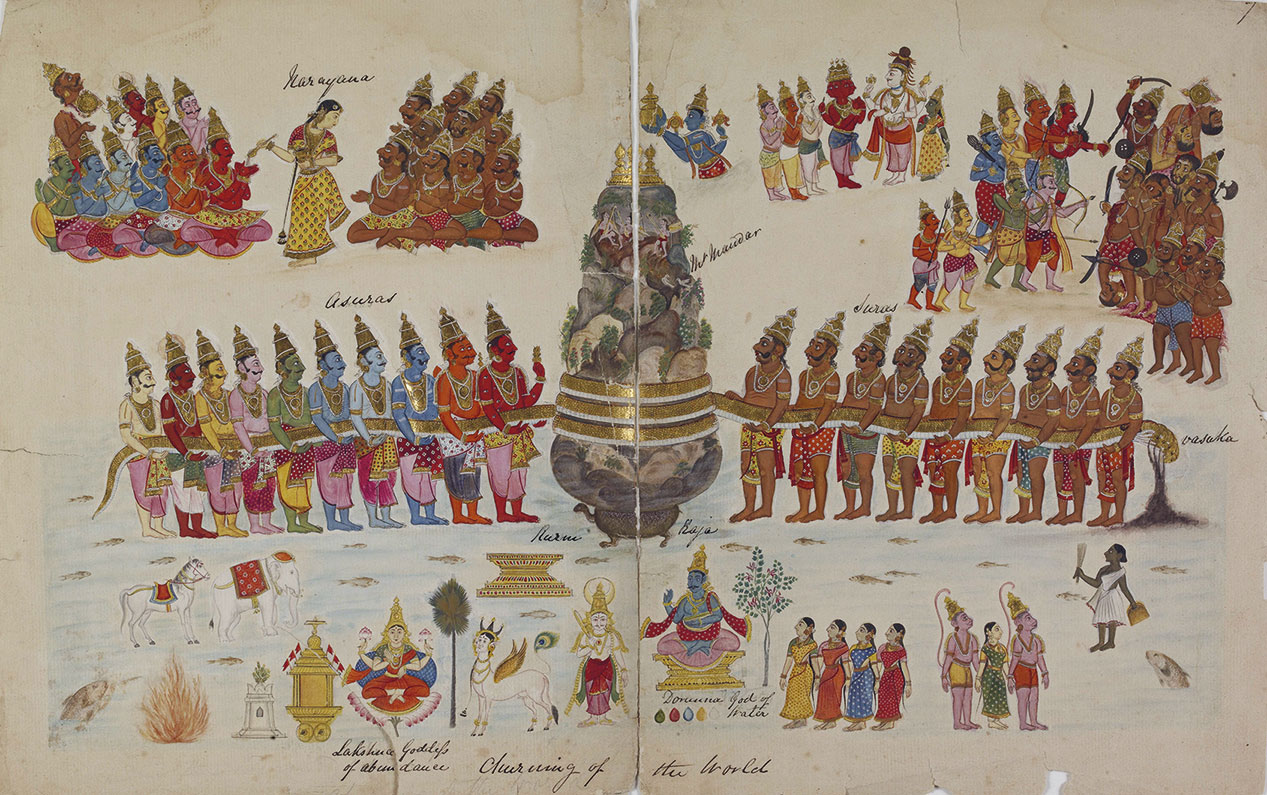 Narayana
Mt Mandar
Asuras
Suras
Vasuka
Kurm Raja
Dorunna God of
Water
Lakshmee Goddess
of abundance
Churning of the World